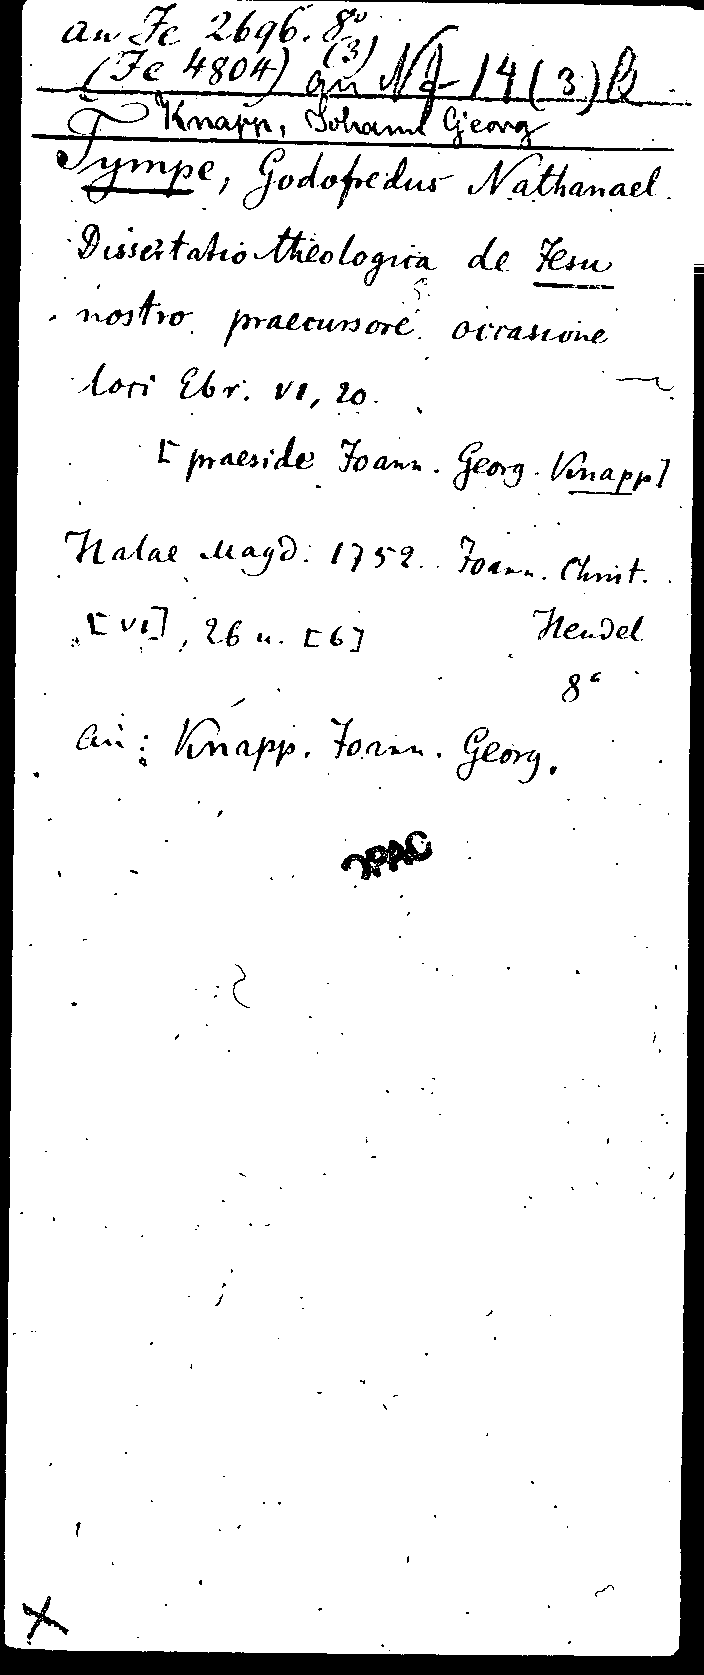 an Fe 2696. 8°
(Fe 4804) (3) an Nf 14 (3) R
Knapp, Johann Georg
Tympe, Godofredus Nathanael.
Dissertatio theologica de Jesu
nostro praecursore occasione
loci Ebr. VI, 20.
[praeside Joann. Georg. Knapp]
Halae Magd. 1752. Joann. Christ.
[VI], 26 u. [6] Hendel
8°
an: Knapp. Joann. Georg.